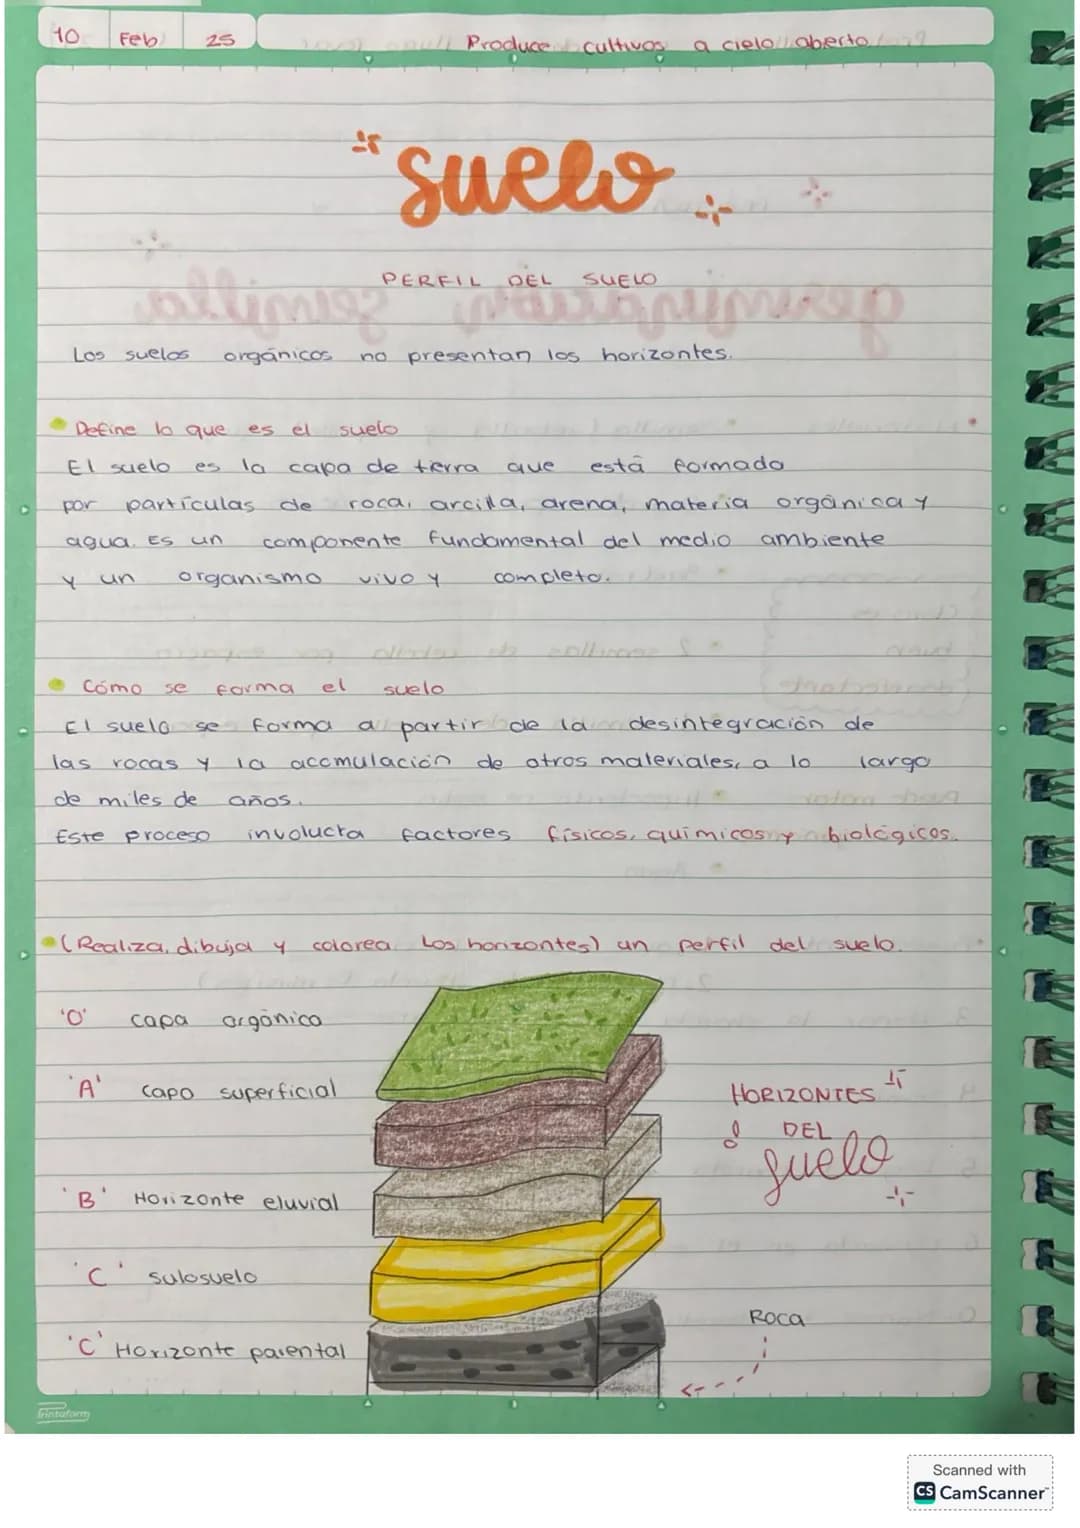 10 Feb 25 Produce cultivos a cielo abierto
suelo
PERFIL DEL SUELO
Los suelos orgánicos no presentan los horizontes.
Define lo que es el suelo
El suelo es la capa de tierra que está formada
por partículas de roca, arcilla, arena, materia orgánica y
agua. Es un componente fundamental del medio ambiente
y un organismo vivo y completo.
Cómo se forma el suelo
El suelo se forma a partir de la desintegración de
las rocas y la acomulación de otros materiales, a lo largo
de miles de años.
Este proceso involucta factores físicos, químicos y biológicos.
(Realiza, dibuja y colorea Los horizontes) un perfil del suelo.
'O' capa orgánica
'A' capa superficial
HORIZONTES
DEL
suelo
'B' Horizonte eluvial
'C' sulosuelo
Roca
'C' Horizonte parental
Printaform
Scanned with
CS CamScanner